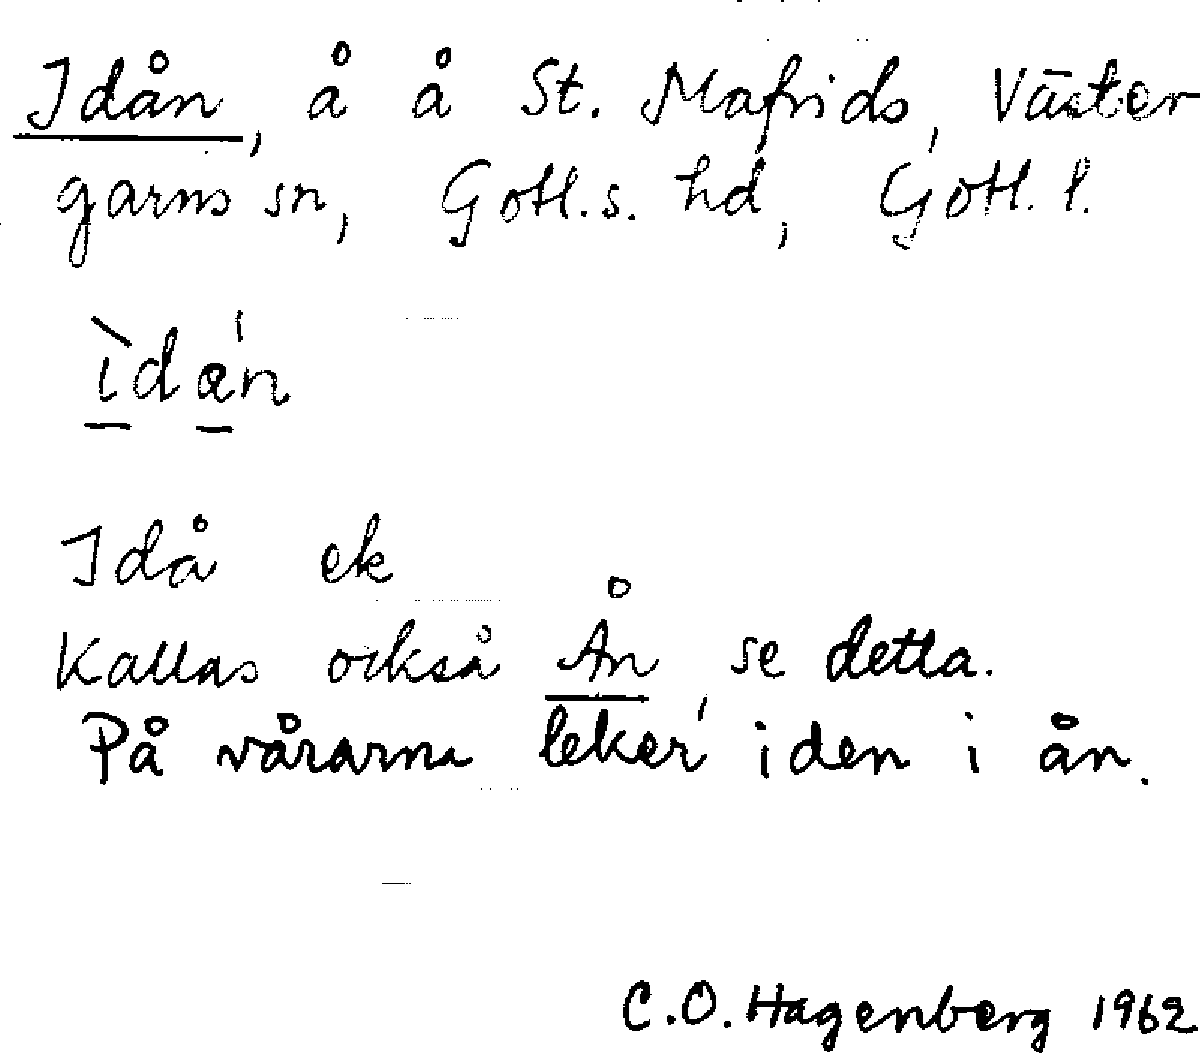 Idån, å å St. Mafrids, Väster
garns sn, Gotl. s. hd, Gotl. l.
ìdán
Idå ek
Kallas också Ån, se detta.
På vårarna leker iden i ån.
C.O. Hagenberg 1962